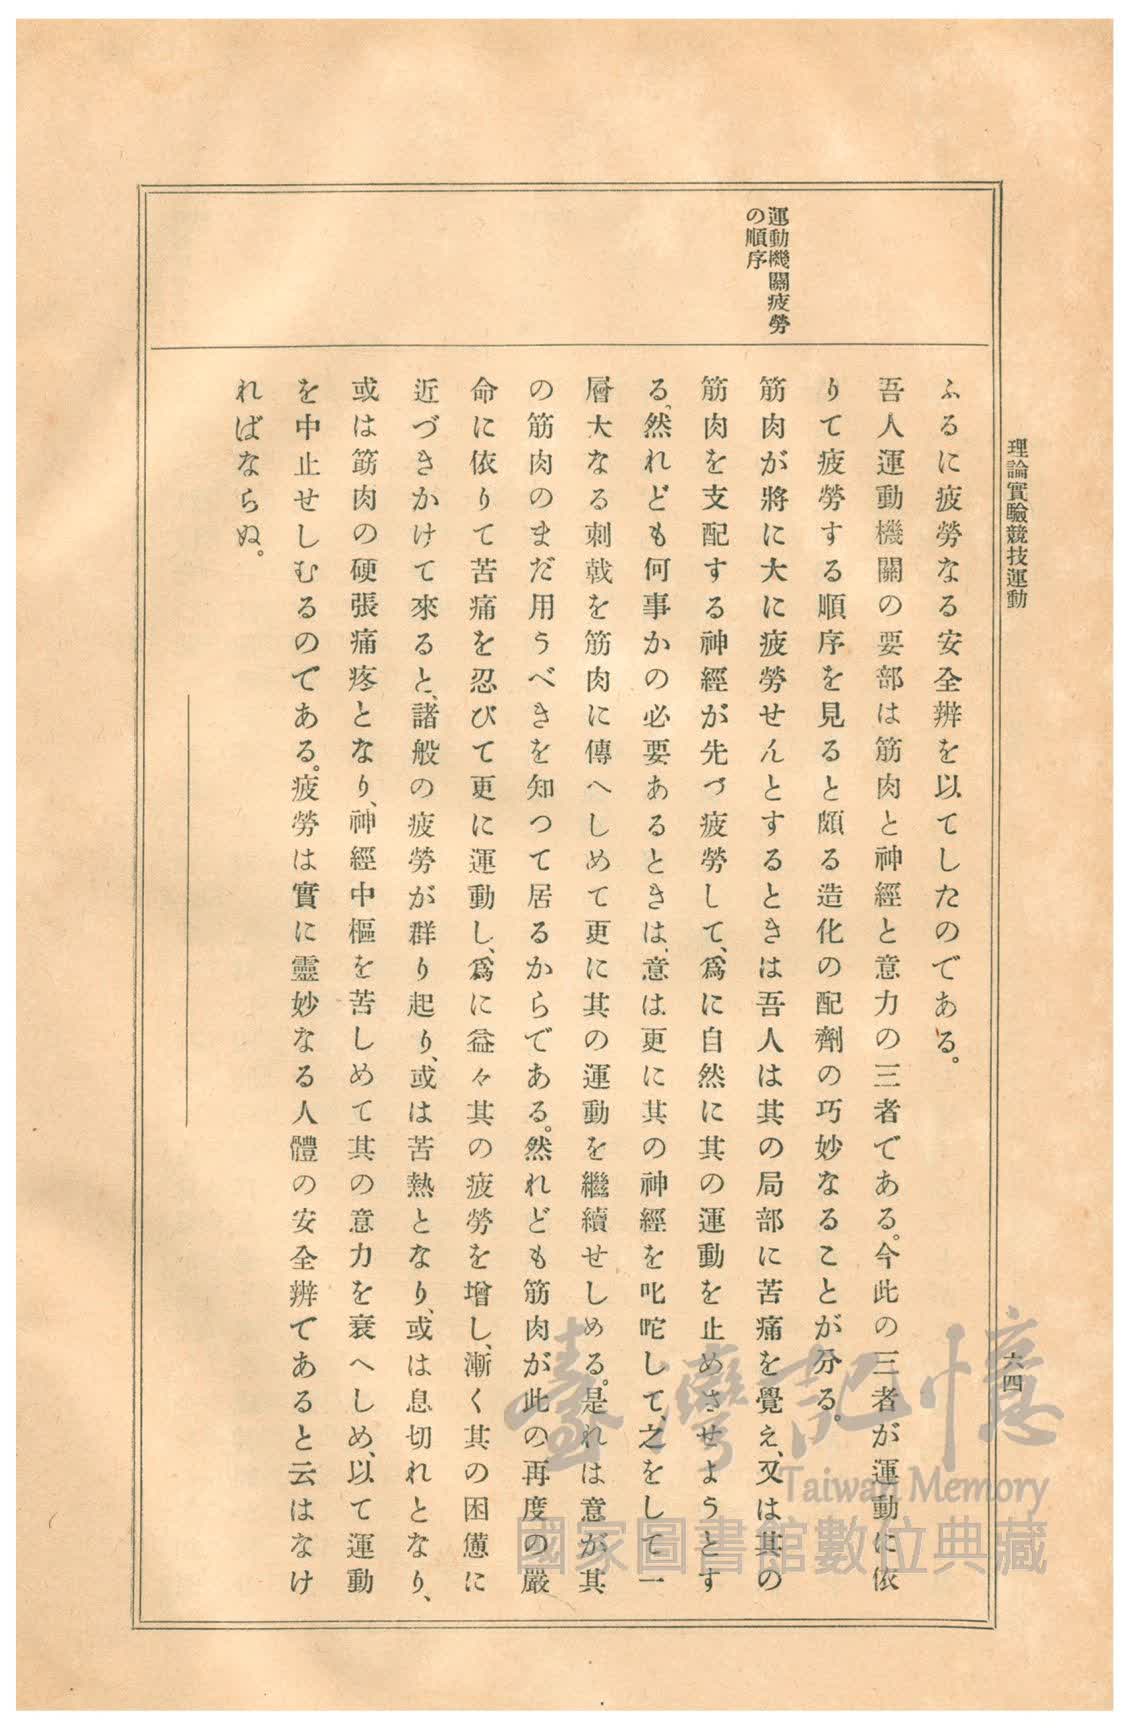 理論實驗競技運動
六四
運動機關疲勞
の順序
ふるに疲勞なる安全辨を以てしたのである。
吾人運動機關の要部は筋肉と神經と意力の三者である。今此の三者が運動に依
りて疲勞する順序を見ると頗る造化の配劑の巧妙なることが分る。
筋肉が將に大に疲勞せんとするときは吾人は其の局部に苦痛を覺え、又は其の
筋肉を支配する神經が先づ疲勞して、爲に自然に其の運動を止めさせようとす
る。然れども何事かの必要あるときは、意は更に其の神經を叱咤して、之をして一
層大なる刺戟を筋肉に傳へしめて更に其の運動を繼續せしめる。是れは意が其
の筋肉のまだ用うべきを知つて居るからである。然れども筋肉が此の再度の嚴
命に依りて苦痛を忍びて更に運動し、爲に益々其の疲勞を增し、漸く其の困憊に
近づきかけて來ると、諸般の疲勞が群り起り、或は苦熱となり、或は息切れとなり、
或は筋肉の硬張痛疼となり、神經中樞を苦しめて其の意力を衰へしめ、以て運動
を中止せしむるのである。疲勞は實に靈妙なる人體の安全辨であると云はなけ
ればならぬ。
臺灣記憶
Taiwan Memory
國家圖書館數位典藏